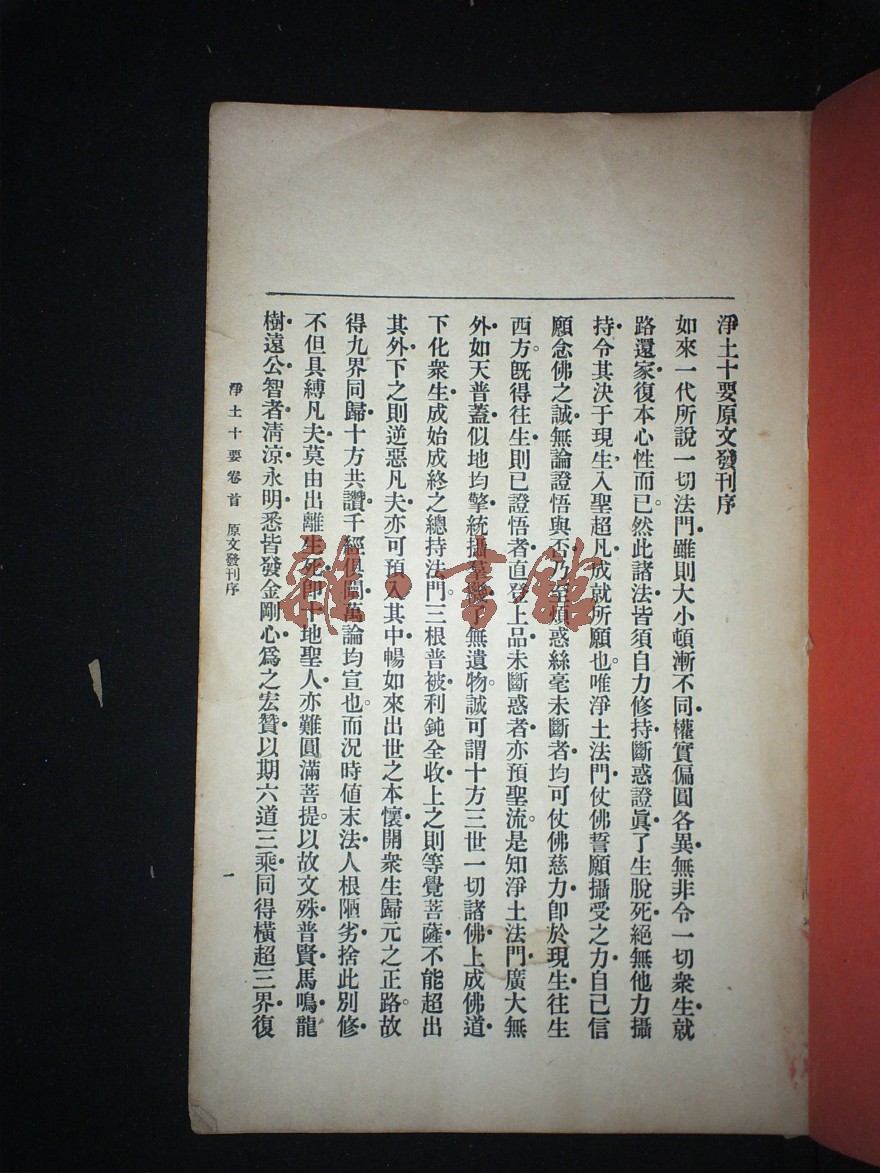 淨土十要原文發刊序
如來一代所說一切法門雖則大小頓漸不同權實偏圓各異無非令一切衆生就
路還家復本心性而已。然此諸法皆須自力修持斷惑證眞了生脫死絕無他力攝
持令其決于現生入聖超凡成就所願也。唯淨土法門仗佛誓願攝受之力自己信
願念佛之誠無論證悟與否乃至煩惑絲毫未斷者均可仗佛慈力卽於現生往生
西方。旣得往生則已證悟者直登上品未斷惑者亦預聖流。是知淨土法門廣大無
外如天普蓋似地均擎統攝羣機了無遺物。誠可謂十方三世一切諸佛上成佛道
下化衆生成始成終之總持法門。三根普被利鈍全收上之則等覺菩薩不能超出
其外下之則逆惡凡夫亦可預入其中暢如來出世之本懷開衆生歸元之正路。故
得九界同歸十方共讚。千經俱闡萬論均宣也。而況時値末法人根陋劣捨此別修
不但具縛凡夫莫由出離生死卽十地聖人亦難圓滿菩提。以故文殊普賢馬鳴龍
樹遠公智者淸涼永明悉皆發金剛心爲之宏贊以期六道三乘同得橫超三界復
淨土十要卷首 原文發刊序 一
雜·書館